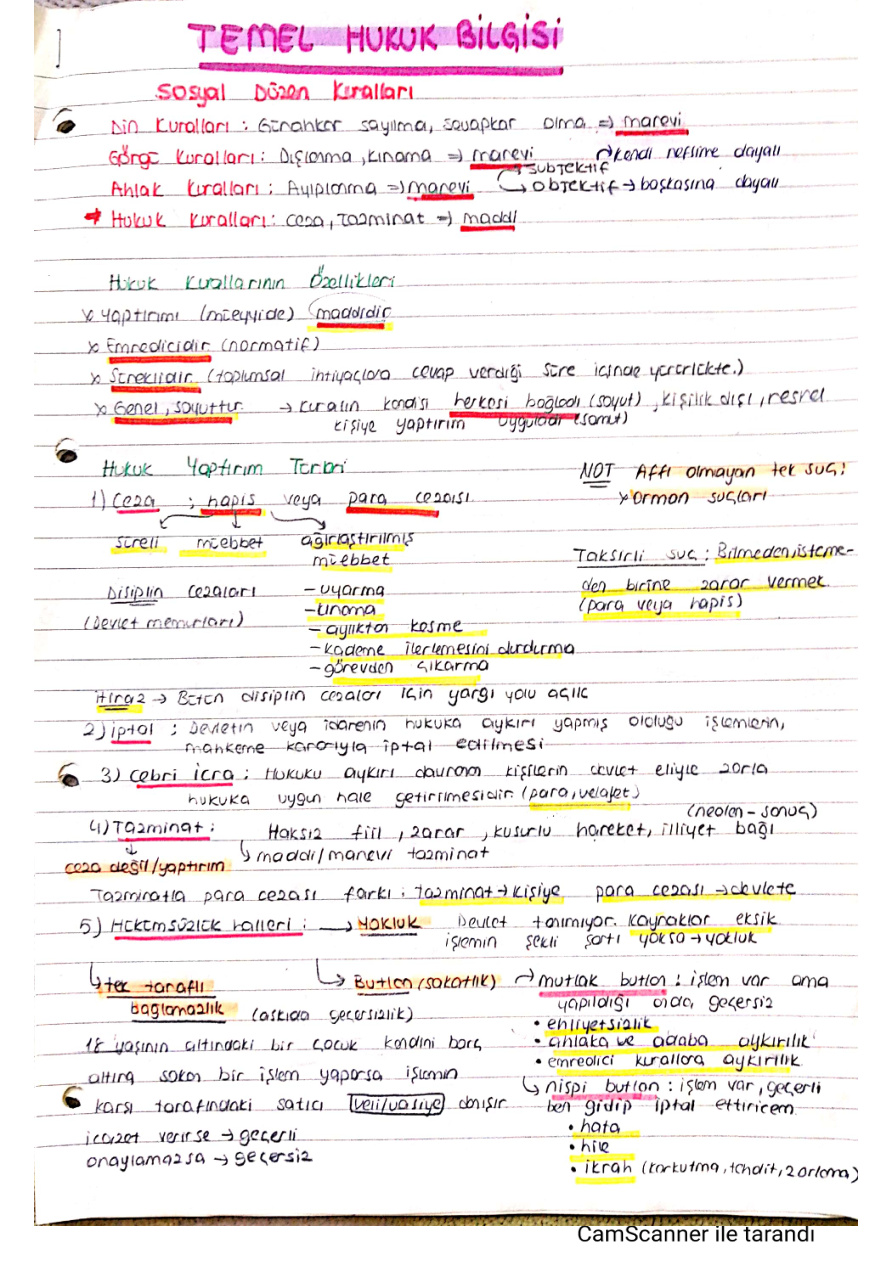 1
TEMEL HUKUK BİLGİSİ
Sosyal Düzen Kuralları
Din Kuralları : Günahkar sayılma, sevapkar olma => manevi
Görgü Kuralları : Dışlanma, kınama => manevi
Ahlak Kuralları : Ayıplanma => manevi
→ subjektif → kendi nefsine dayalı
→ objektif → başkasına dayalı
→ Hukuk Kuralları : ceza, Tazminat => maddi
Hukuk Kurallarının Özellikleri
x Yaptırımı (müeyyide) maddidir
x Emredicidir (normatif)
x Süreklidir (toplumsal ihtiyaçlara cevap verdiği süre içinde yürürlükte.)
x Genel, soyuttur. → Kuralın kendisi herkesi bağladı (soyut), kişilik dışı, resmel
kişiye yaptırım uyguladı (somut)
Hukuk Yaptırım Türleri
1) Ceza : hapis veya para cezası
süreli müebbet ağırlaştırılmış
müebbet
NOT Affı olmayan tek suç!
x orman suçları
Taksirli suç : Bilmeden, isteme-
den birine zarar vermek
(para veya hapis)
Disiplin cezaları
(Devlet memurları)
- uyarma
- kınama
- aylıktan kesme
- kademe ilerlemesini durdurma
- görevden çıkarma
itiraz → Bütün disiplin cezaları için yargı yolu açık
2) iptal : Devletin veya idarenin hukuka aykırı yapmış olduğu işlemlerin,
mahkeme kararıyla iptal edilmesi
3) cebri icra : Hukuku aykırı davranan kişilerin devlet eliyle zorla
hukuka uygun hale getirilmesidir (para, velayet)
4) Tazminat : Haksız fiil, zarar, kusurlu hareket, illiyet bağı
(neden - sonuç)
↓
ceza değil/yaptırım
↳ maddi/manevi tazminat
Tazminatla para cezası farkı : tazminat → kişiye para cezası → devlete
5) Hükümsüzlük halleri : → Yokluk Devlet tanımıyor. Kaynaklar eksik
işlemin şekli şartı yoksa → yokluk
↳ tek taraflı
bağlamazlık (askıda geçersizlik)
18 yaşının altındaki bir çocuk kendini borç
altına sokan bir işlem yaparsa işlemin
karşı tarafındaki satıcı veli/vasiye danışır
icazet verirse → geçerli
onaylamazsa → geçersiz
↳ Butlan (sakatlık) → mutlak butlan : işlem var ama
yapıldığı anda geçersiz
• ehliyetsizlik
• ahlaka ve adaba aykırılık
• emredici kurallara aykırılık
↳ nispi butlan : işlem var, geçerli
ben gidip iptal ettiricem
• hata
• hile
• ikrah (korkutma, tehdit, zorlama)
CamScanner ile tarandı